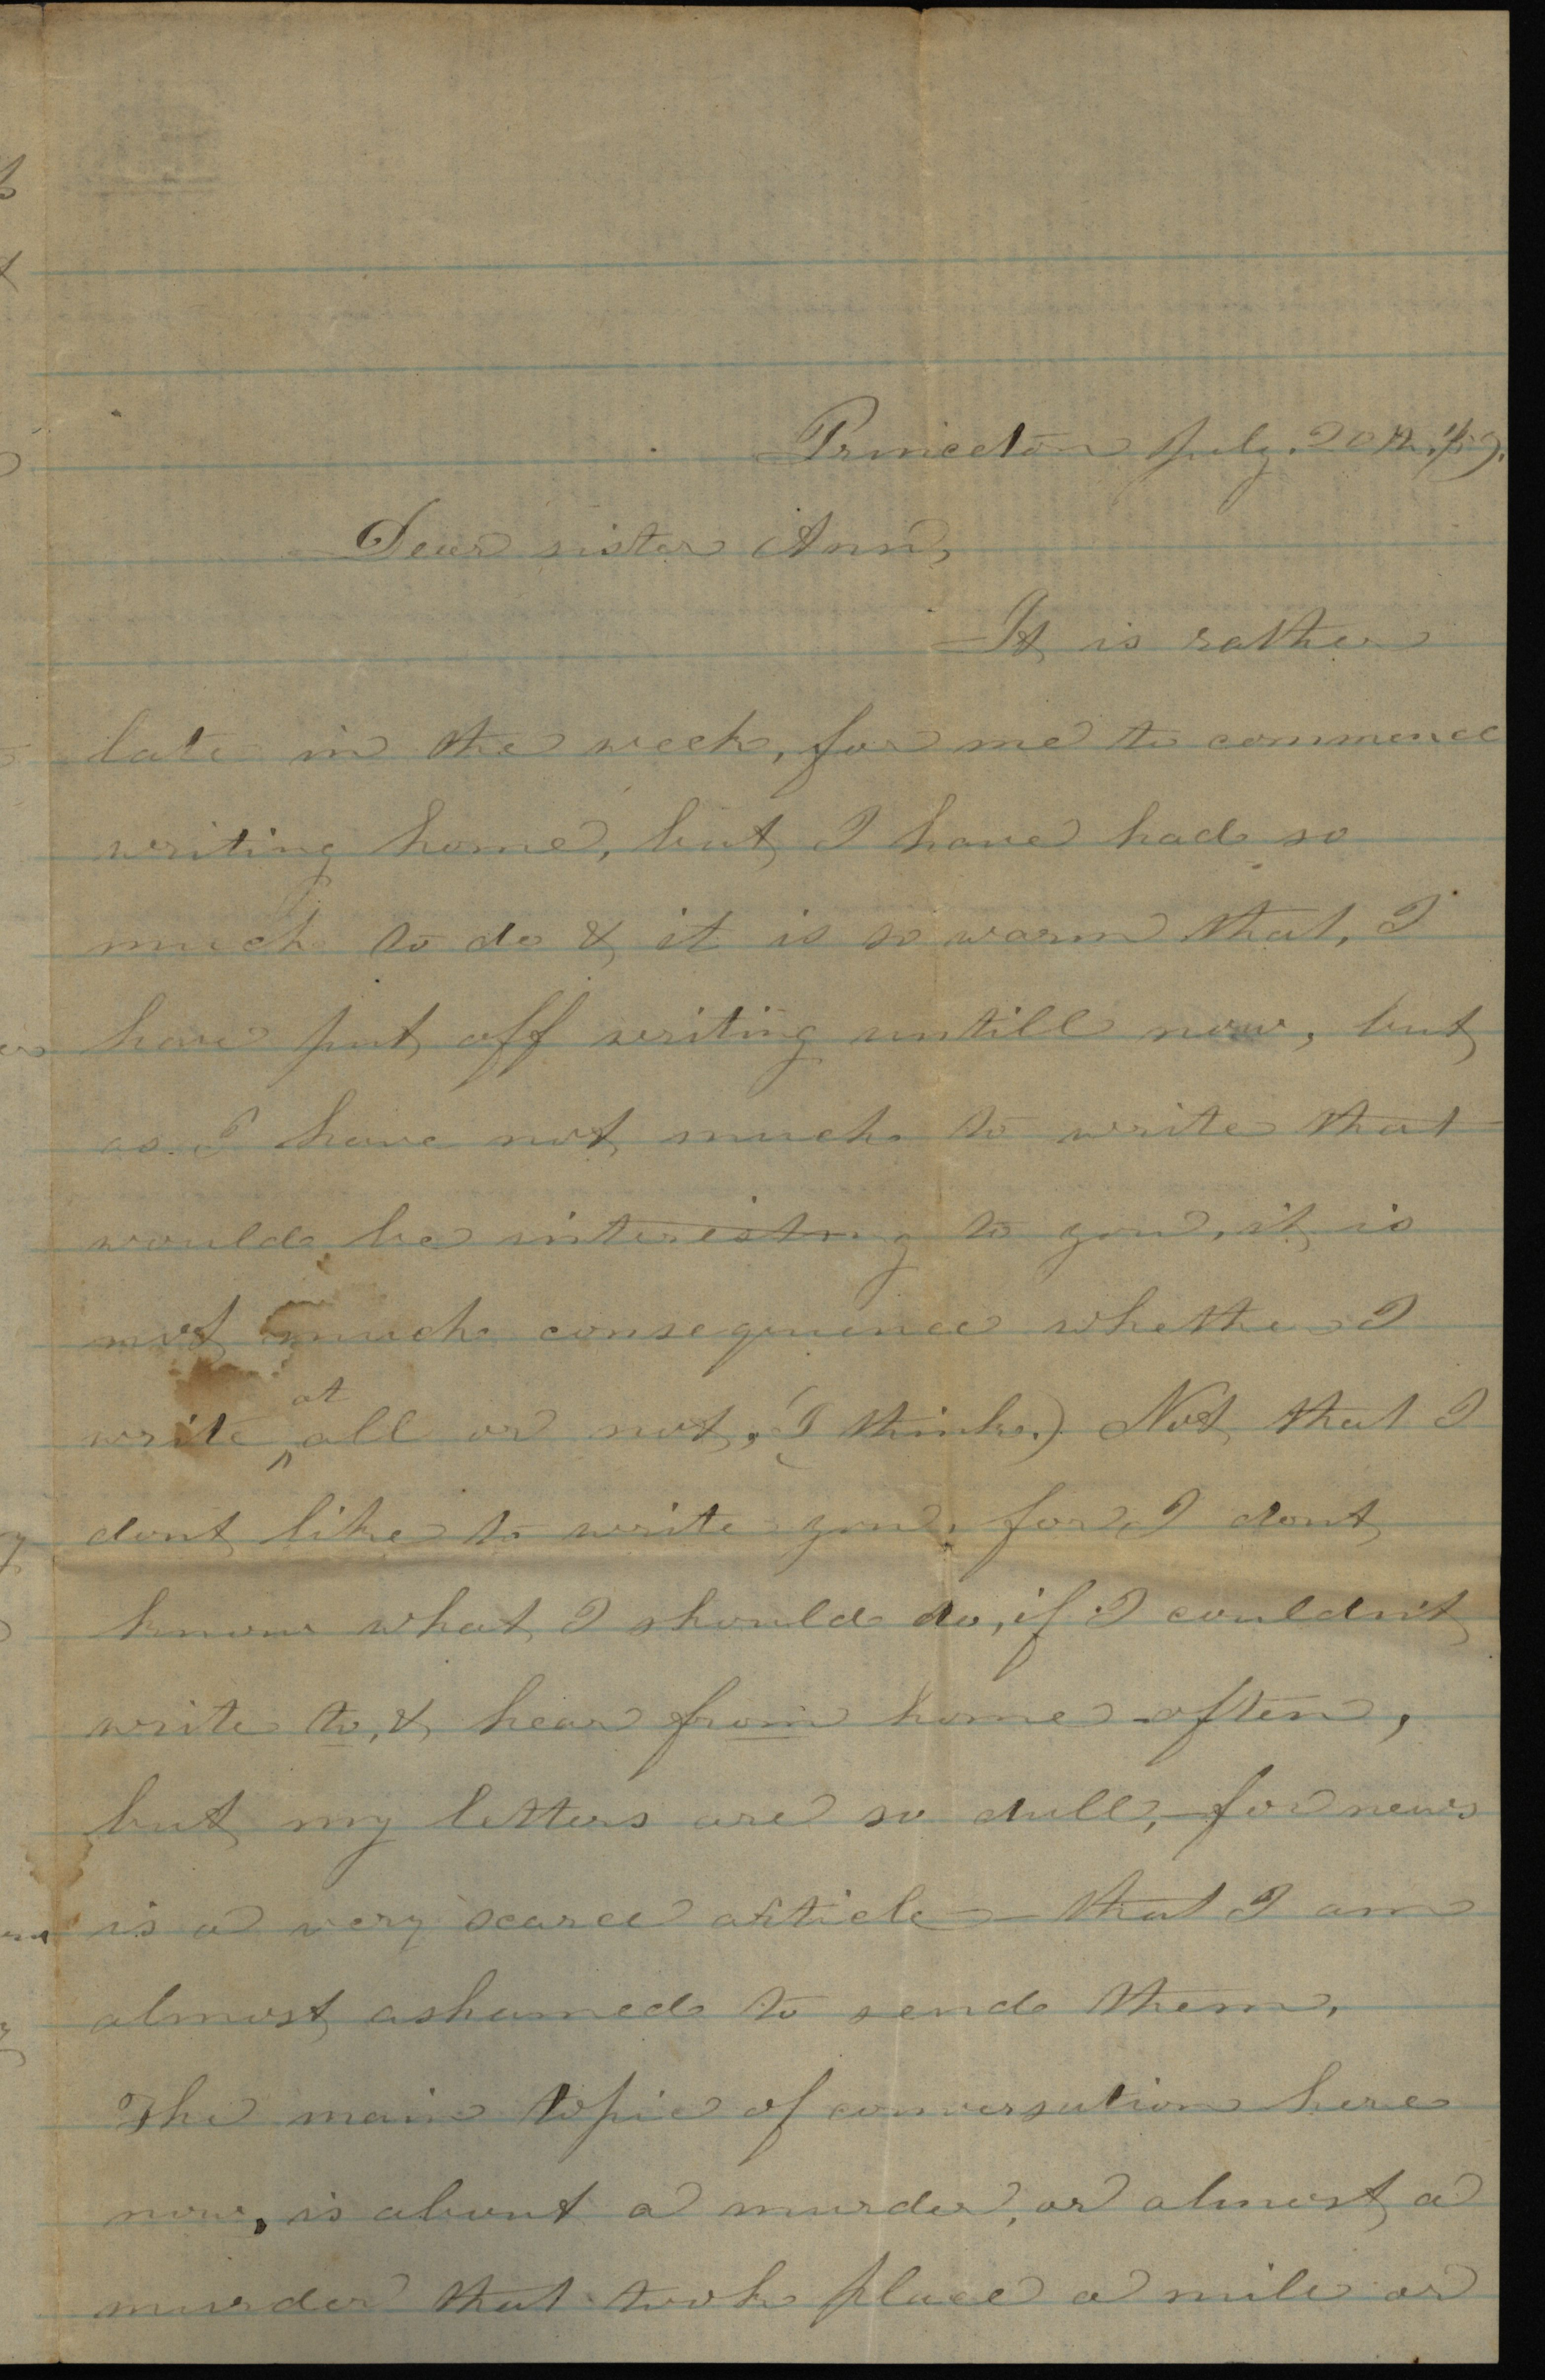 Princeton July. 20th,
Dear sister Ann,
It is rather
late in the week, for me to commence
writing home, but I have had so
much to do & it is so warm that, I
have put off writing untill now, but
as I have not much to write that
would be interesting to you, it is
not much consequence whether I
write at all or not, (I think.) Not that I
dont like to write you, for I dont
know what I should do, if I couldn't
write to, & hear from home often,
but my letters are so dull, for news
is a very scarce article – that I am
almost ashamed to send them.
The main topic of conversation here
now, is about a murder, or almost a
murder that took place a mile or